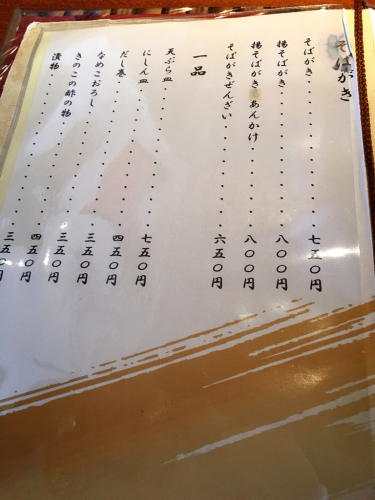 そばがき
そばがき・・・・・・・・・・七五〇円
揚そばがき・・・・・・・・・八〇〇円
揚そばがき あんかけ・・・・・八〇〇円
そばがきぜんざい・・・・・・六五〇円
一品
天ぷら皿・・・・・・・・・・七五〇円
にしん皿・・・・・・・・・・四五〇円
だし巻・・・・・・・・・・・三五〇円
なめこおろし・・・・・・・・三五〇円
きのこの酢の物・・・・・・・四五〇円
漬物・・・・・・・・・・・・三五〇円